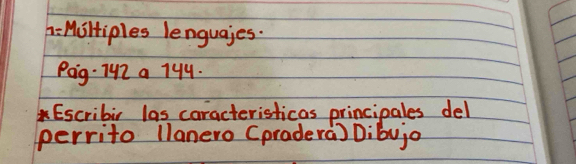 1=Múltiples lenguajes.
Pág. 142 a 144.
*Escribir las caracteristicas principales del
perrito llanero (pradera) Dibujo